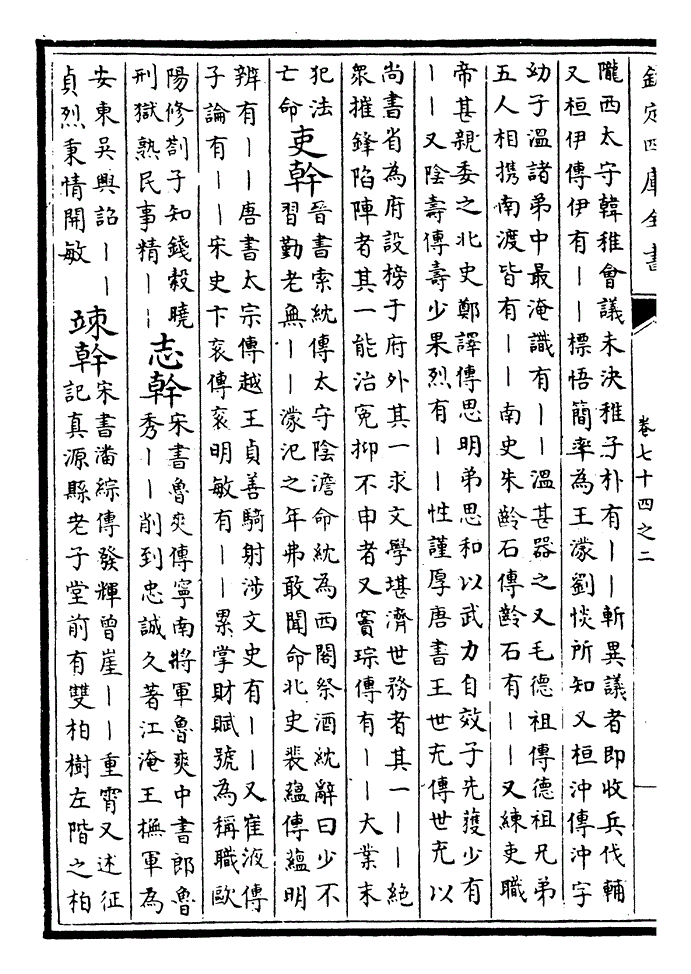 欽定四庫全書
卷七十四之二
隴西太守韓稚會議未決稚子朴有||斬異議者即收兵代輔
又桓伊傳伊有||標悟簡率為王濛劉惔所知又桓沖傳沖字
幼子溫諸弟中最淹識有||溫甚器之又毛德祖傳德祖兄弟
五人相攜南渡皆有||南史朱齡石傳齡石有||又練吏職
帝甚親委之北史鄭譯傳思明弟思和以武力自效子先護少有
||又陰壽傳壽少果烈有||性謹厚唐書王世充傳世充以
尚書省為府設榜于府外其一求文學堪濟世務者其一||絕
眾摧鋒陷陣者其一能治冤抑不申者又竇琮傳有||大業末
犯法
亡命
吏幹
晉書索紞傳太守陰澹命紞為西閣祭酒紞辭曰少不
習勤老無||濛汜之年弗敢聞命北史裴蘊傳蘊明
辨有||唐書太宗傳越王貞善騎射涉文史有||又崔液傳
子論有||宋史卞袞傳袞明敏有||累掌財賦號為稱職歐
陽修劄子知錢穀曉
刑獄熟民事精||
志幹
宋書魯爽傳寧南將軍魯爽中書郎魯
秀||削到忠誠久著江淹王撫軍為
安東吳興詔||
貞烈秉情開敏
竦幹
宋書潘綜傳發輝曾崖||重霄又述征
記真源縣老子堂前有雙柏樹左階之柏